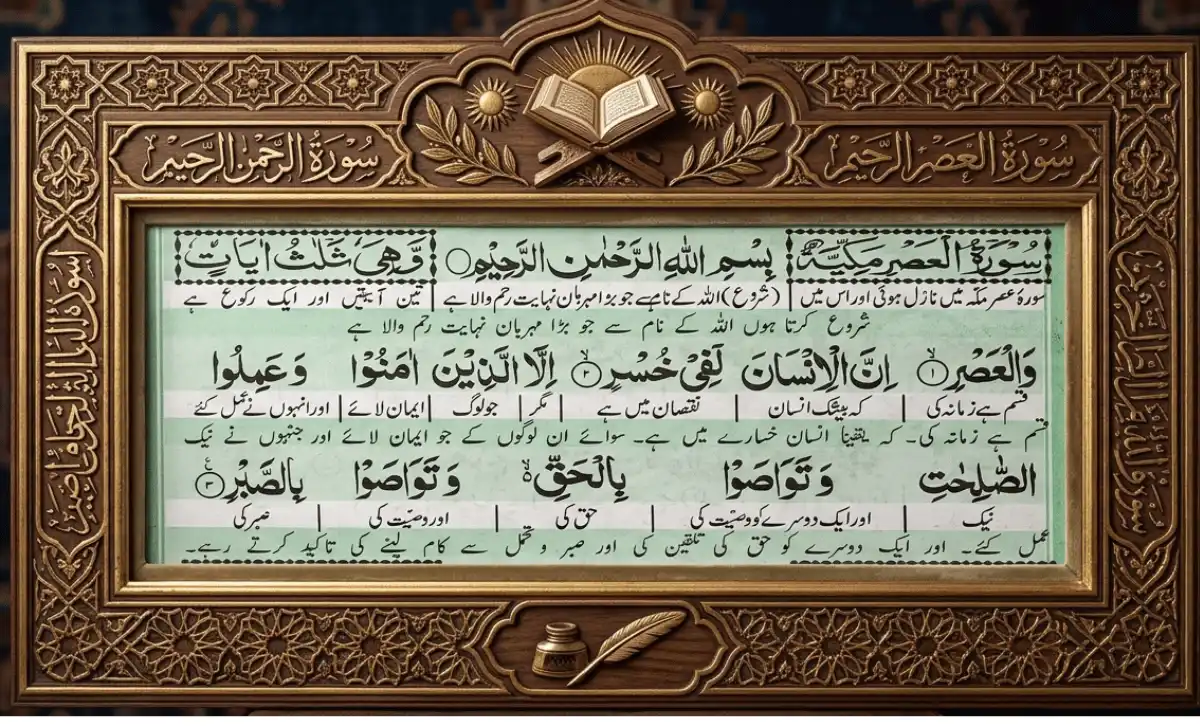 سُوْرَةُ الْعَصْرِ الرَّحِيْمِ
سُوْرَةُ الرَّحْمٰنِ الرَّحِيْمِ
سُوْرَةُ الْعَصْرِ مَكِّيَّةٌ بِسْمِ اللّٰهِ الرَّحْمٰنِ الرَّحِيْمِ وَّهِيَ ثَلٰثُ اٰيَاتٍ
سورۂ عصر مکہ میں نازل ہوئی اور اس میں | (شروع) اللہ کے نام سے جو بڑا مہربان نہایت رحم والا ہے | تین آیتیں اور ایک رکوع ہے
شروع کرتا ہوں اللہ کے نام سے جو بڑا مہربان نہایت رحم والا ہے
وَالْعَصْرِ ۙ﴿۱﴾ اِنَّ الْاِنْسَانَ لَفِيْ خُسْرٍ ۙ﴿۲﴾ اِلَّا الَّذِيْنَ اٰمَنُوْا وَعَمِلُوا
قسم ہے زمانہ کی | کہ بیشک انسان | نقصان میں ہے | مگر | جو لوگ | ایمان لائے | اور انہوں نے عمل کئے
قسم ہے زمانہ کی۔ کہ یقیناً انسان خسارے میں ہے۔ سوائے ان لوگوں کے جو ایمان لائے اور جنہوں نے نیک
الصّٰلِحٰتِ وَتَوَاصَوْا بِالْحَقِّ ۙ وَتَوَاصَوْا بِالصَّبْرِ ﴿۳﴾
نیک | اور ایک دوسرے کو وصیت کی | حق کی | اور وصیت کی | صبر کی
عمل کئے۔ اور ایک دوسرے کو حق کی تلقین کی اور صبر و تحمل سے کام لینے کی تاکید کرتے رہے۔